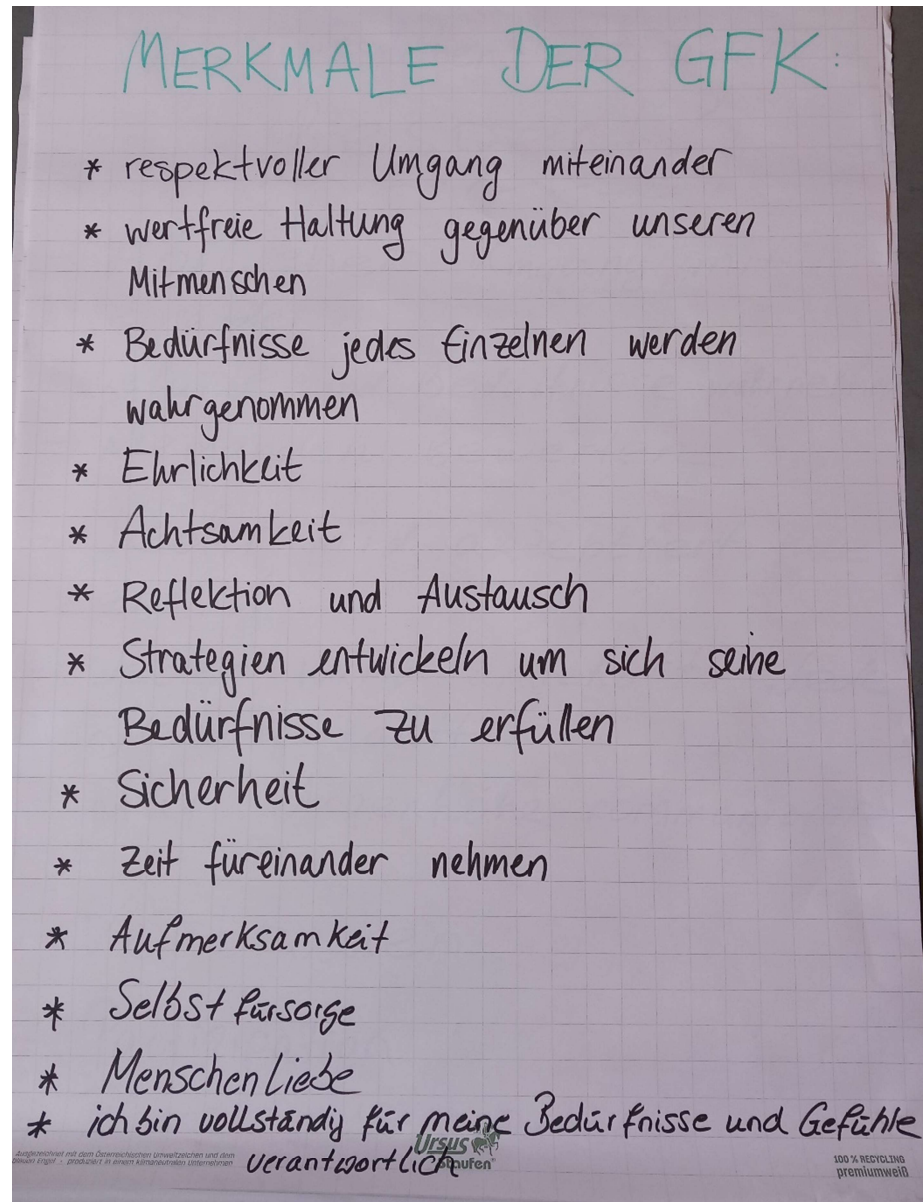 MERKMALE DER GFK:
* respektvoller Umgang miteinander
* wertfreie Haltung gegenüber unseren
Mitmenschen
* Bedürfnisse jedes Einzelnen werden
wahrgenommen
* Ehrlichkeit
* Achtsamkeit
* Reflektion und Austausch
* Strategien entwickeln um sich seine
Bedürfnisse zu erfüllen
* Sicherheit
* Zeit füreinander nehmen
* Aufmerksamkeit
* Selbstfürsorge
* Menschenliebe
* ich bin vollständig für meine Bedürfnisse und Gefühle
verantwortlich
Ausgezeichnet mit dem Österreichischen Umweltzeichen und dem
Blauen Engel - produziert in einem klimaneutralen Unternehmen
Ursus
Staufen
100 % RECYCLING
premiumweiß